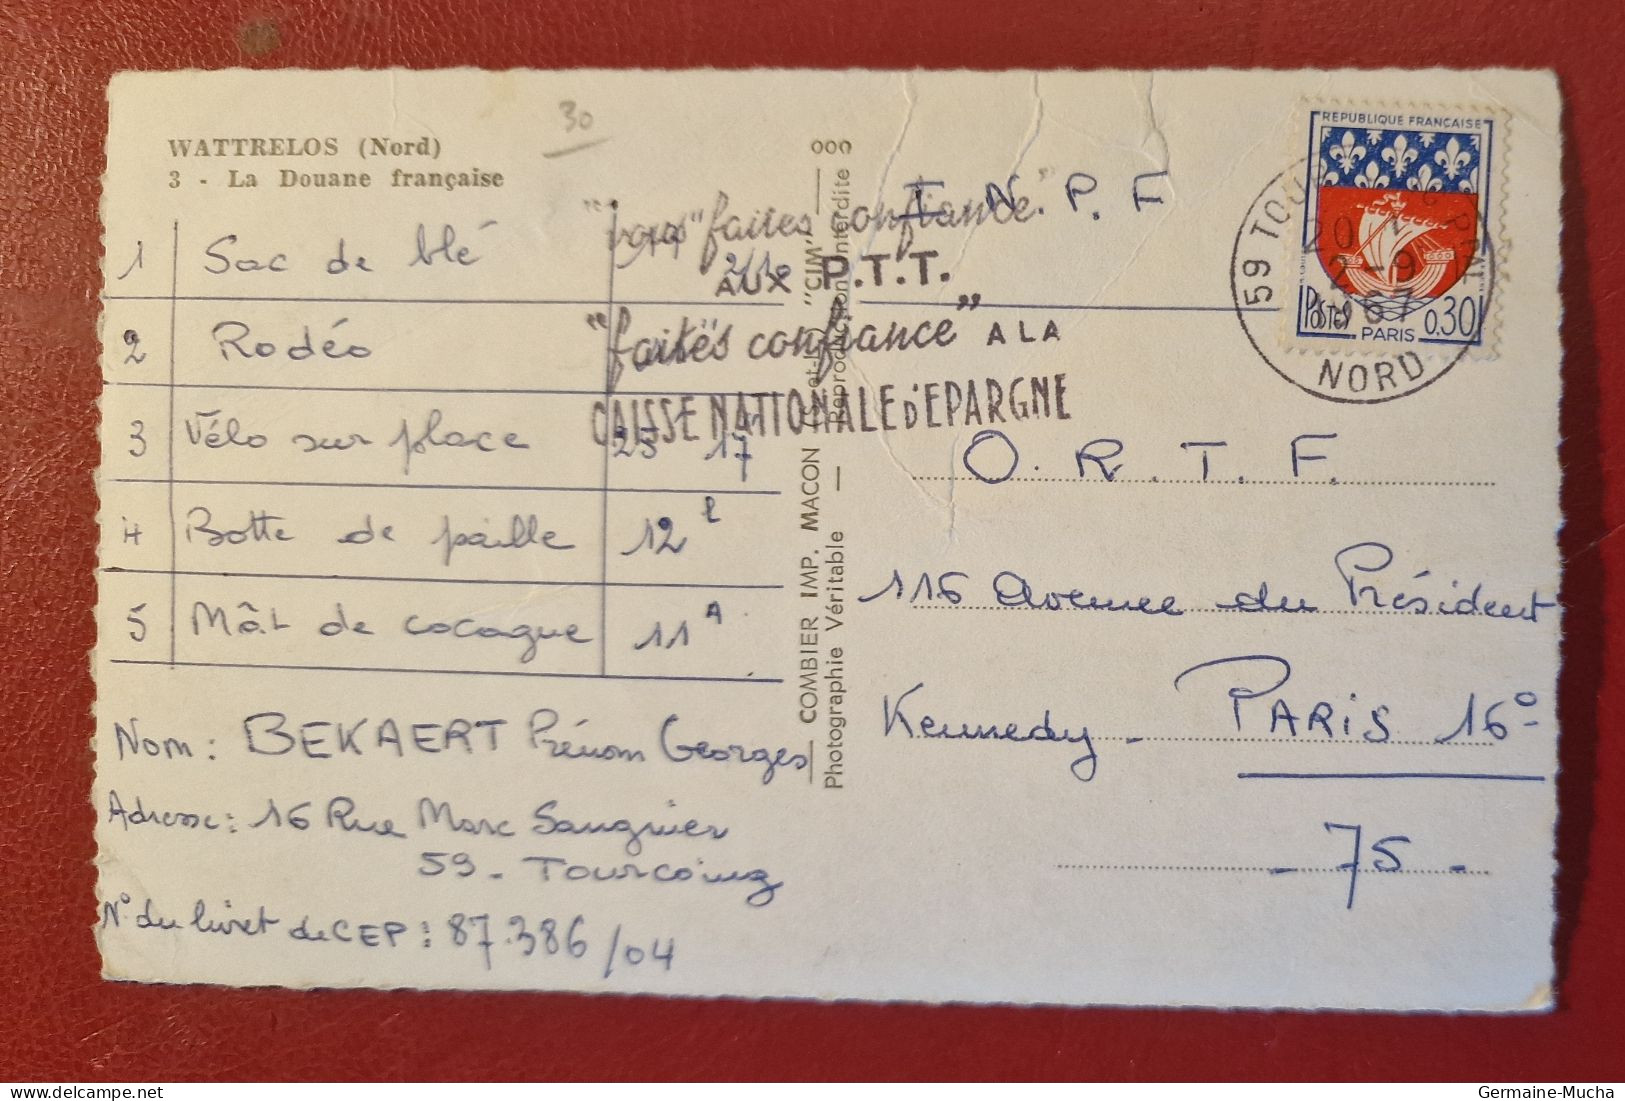 WATTRELOS (Nord)
3 - La Douane française
30
1 Sac de blé
2 Rodéo
3 Vélo sur place 25 17
4 Botte de paille 12
5 Mât de cocagne 11 A
Nom : BEKAERT Prénom Georges
Adresse : 16 Rue Marc Sangnier
59 - Tourcoing
N° du livret de CEP : 87.386/04
"vous" faites confiance"
AUX P.T.T.
"faites confiance" A LA
CAISSE NATIONALE D'EPARGNE
COMBIER IMP. MACON (S.-et-L.) "CIM"
Photographie Véritable — Reproduction Interdite
000
I. N. P. F
O. R. T. F.
116 Avenue du Président
Kennedy - PARIS 16°
- 75 -
REPUBLIQUE FRANÇAISE
POSTES
PARIS
0,30
59
20
2 - 9
67
NORD
Germaine-Mucha